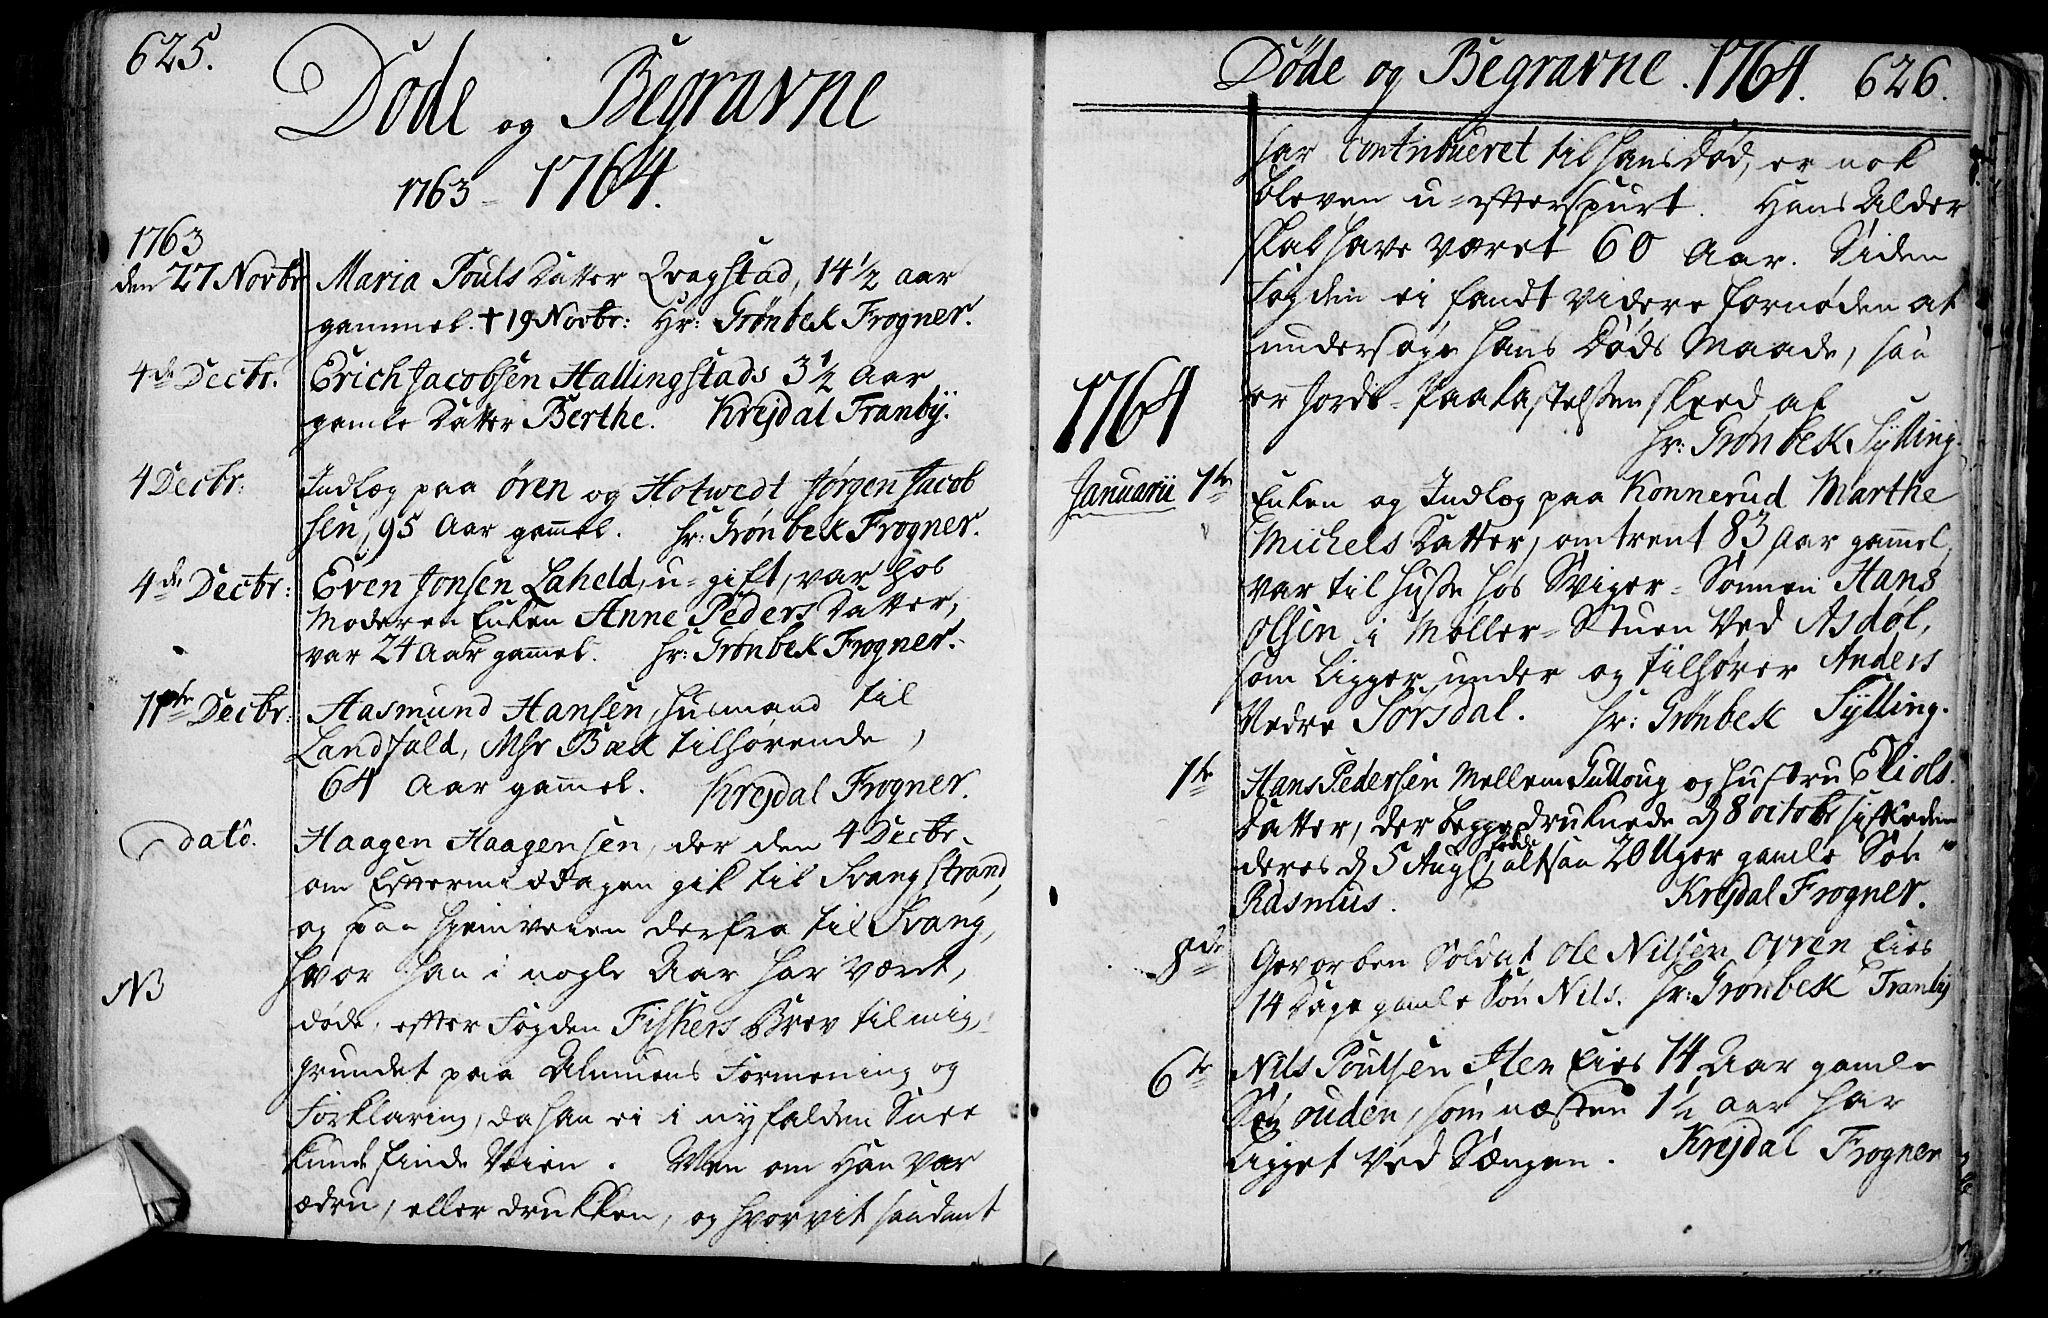 625.
Døde og Begravne
1763 - 1764.
1763
den 27 Novbr
Maria Pouls Datter Qvagstad, 14 1/2 aar
gammel. † 19 Novbr: Hr: Grønbek Frogner.
4de Decbr.
Erich Jacobsen Hallingstads 3 1/2 Aar
gamle Datter Berthe. Krejdal Tranbÿ.
4 Decbr:
Indlæg paa Ören og Hotwedt Jørgen Jacob
sen, 95 Aar gam̄el. Hr: Grønbek Frogner.
4de Decbr:
Even Jonsen Laheld, u-gift, var hos
Moderen Enken Anne Peders Datter,
var 24 Aar gam̄el. Hr: Grønbek Frogner.
11te Decbr:
Aasmund Hansen, Husmand til
Landfald, Mhr Bæk tilhørende,
64 Aar gam̄el. Krejdal Frogner.
dato.
Haagen Haagensen, der den 4 Decbr.
om Eftermiddagen gik til Svangstrand,
og paa Hjemveien derfra til Svang,
NB
hvor han i nogle Aar har været,
døde, efter Fogden Fishers Brev til mig,
grundet paa Almuens Formening og
Forklaring, da han ei i nyfalden Snee
kunde finde Veien. Men om Han var
ædru, eller drukken, og hvorvit saadant
Döde og Begravne. 1764. 626.
har contribueret til hans Död, er nok
bleven u-efterspurt. Hans Alder
skal have været 60 Aar. Siden
Fogden ei fandt videre fornøden at
undersøge hans Døds Maade, saa
er Jords-Paakastelsen skeed af
Hr: Grønbek Sÿlling.
1764
Januarii 1te
Enken og Indlæg paa Konnerud Marthe
Michels Datter, omtrent 83 Aar gam̄el,
var til Huse hos Sviger-Sønnen Hans
Olsen i Møller-Stuen ved Asdøl,
som ligger under og tilhører Anders
Nedre Sørsdal. Hr: Grønbek Sÿlling.
1te
Hans Pedersen Mellem Gulloug og Hustru Eli Ols
Datter, der begge druknede d 8 octobr sistleden
deres d 5 Aug fødde altsaa 20 Uger gamle Søn
Rasmus. Krejdal Frogner.
Gevorben Soldat Ole Nilsen Ovren Eies
14 Dage gamle Søn Nils. Hr: Grønbek Tranbÿ
6te
Nils Poulsen Hen Eies 14 Aar gamle
Søn ouden, som næsten 1 1/2 aar har
ligget ved Sængen. Krejdal Frogner